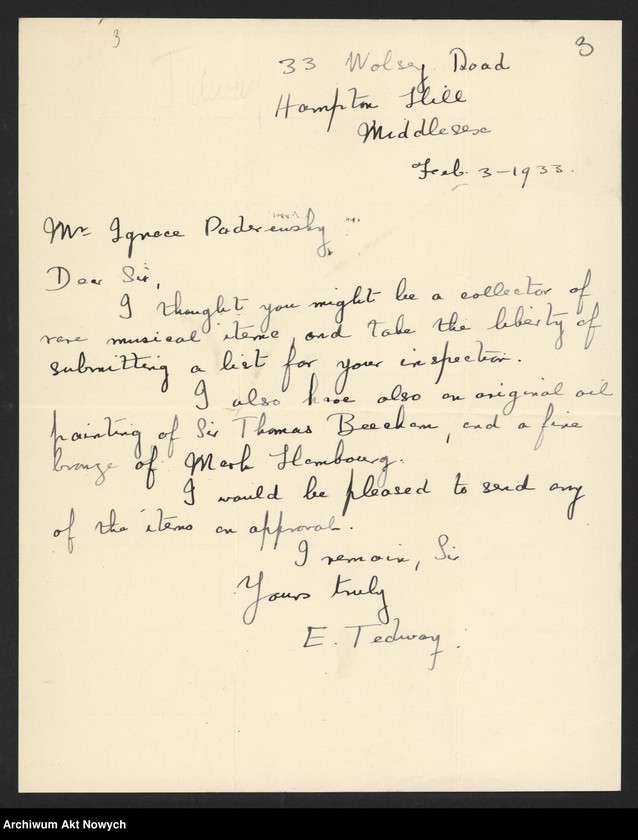 3
3
33 Wolsey Road
Hampton Hill
Middlesex
Feb. 3-1933.
Mr Ignace Paderewsky,
Dear Sir,
I thought you might be a collector of
rare musical items, and take the liberty of
submitting a list for your inspection.
I also have also an original oil
painting of Sir Thomas Beecham, and a fine
bronze of Mark Hambourg.
I would be pleased to send any
of the items on approval.
I remain, Sir
Yours truly
E. Tedway.
Archiwum Akt Nowych